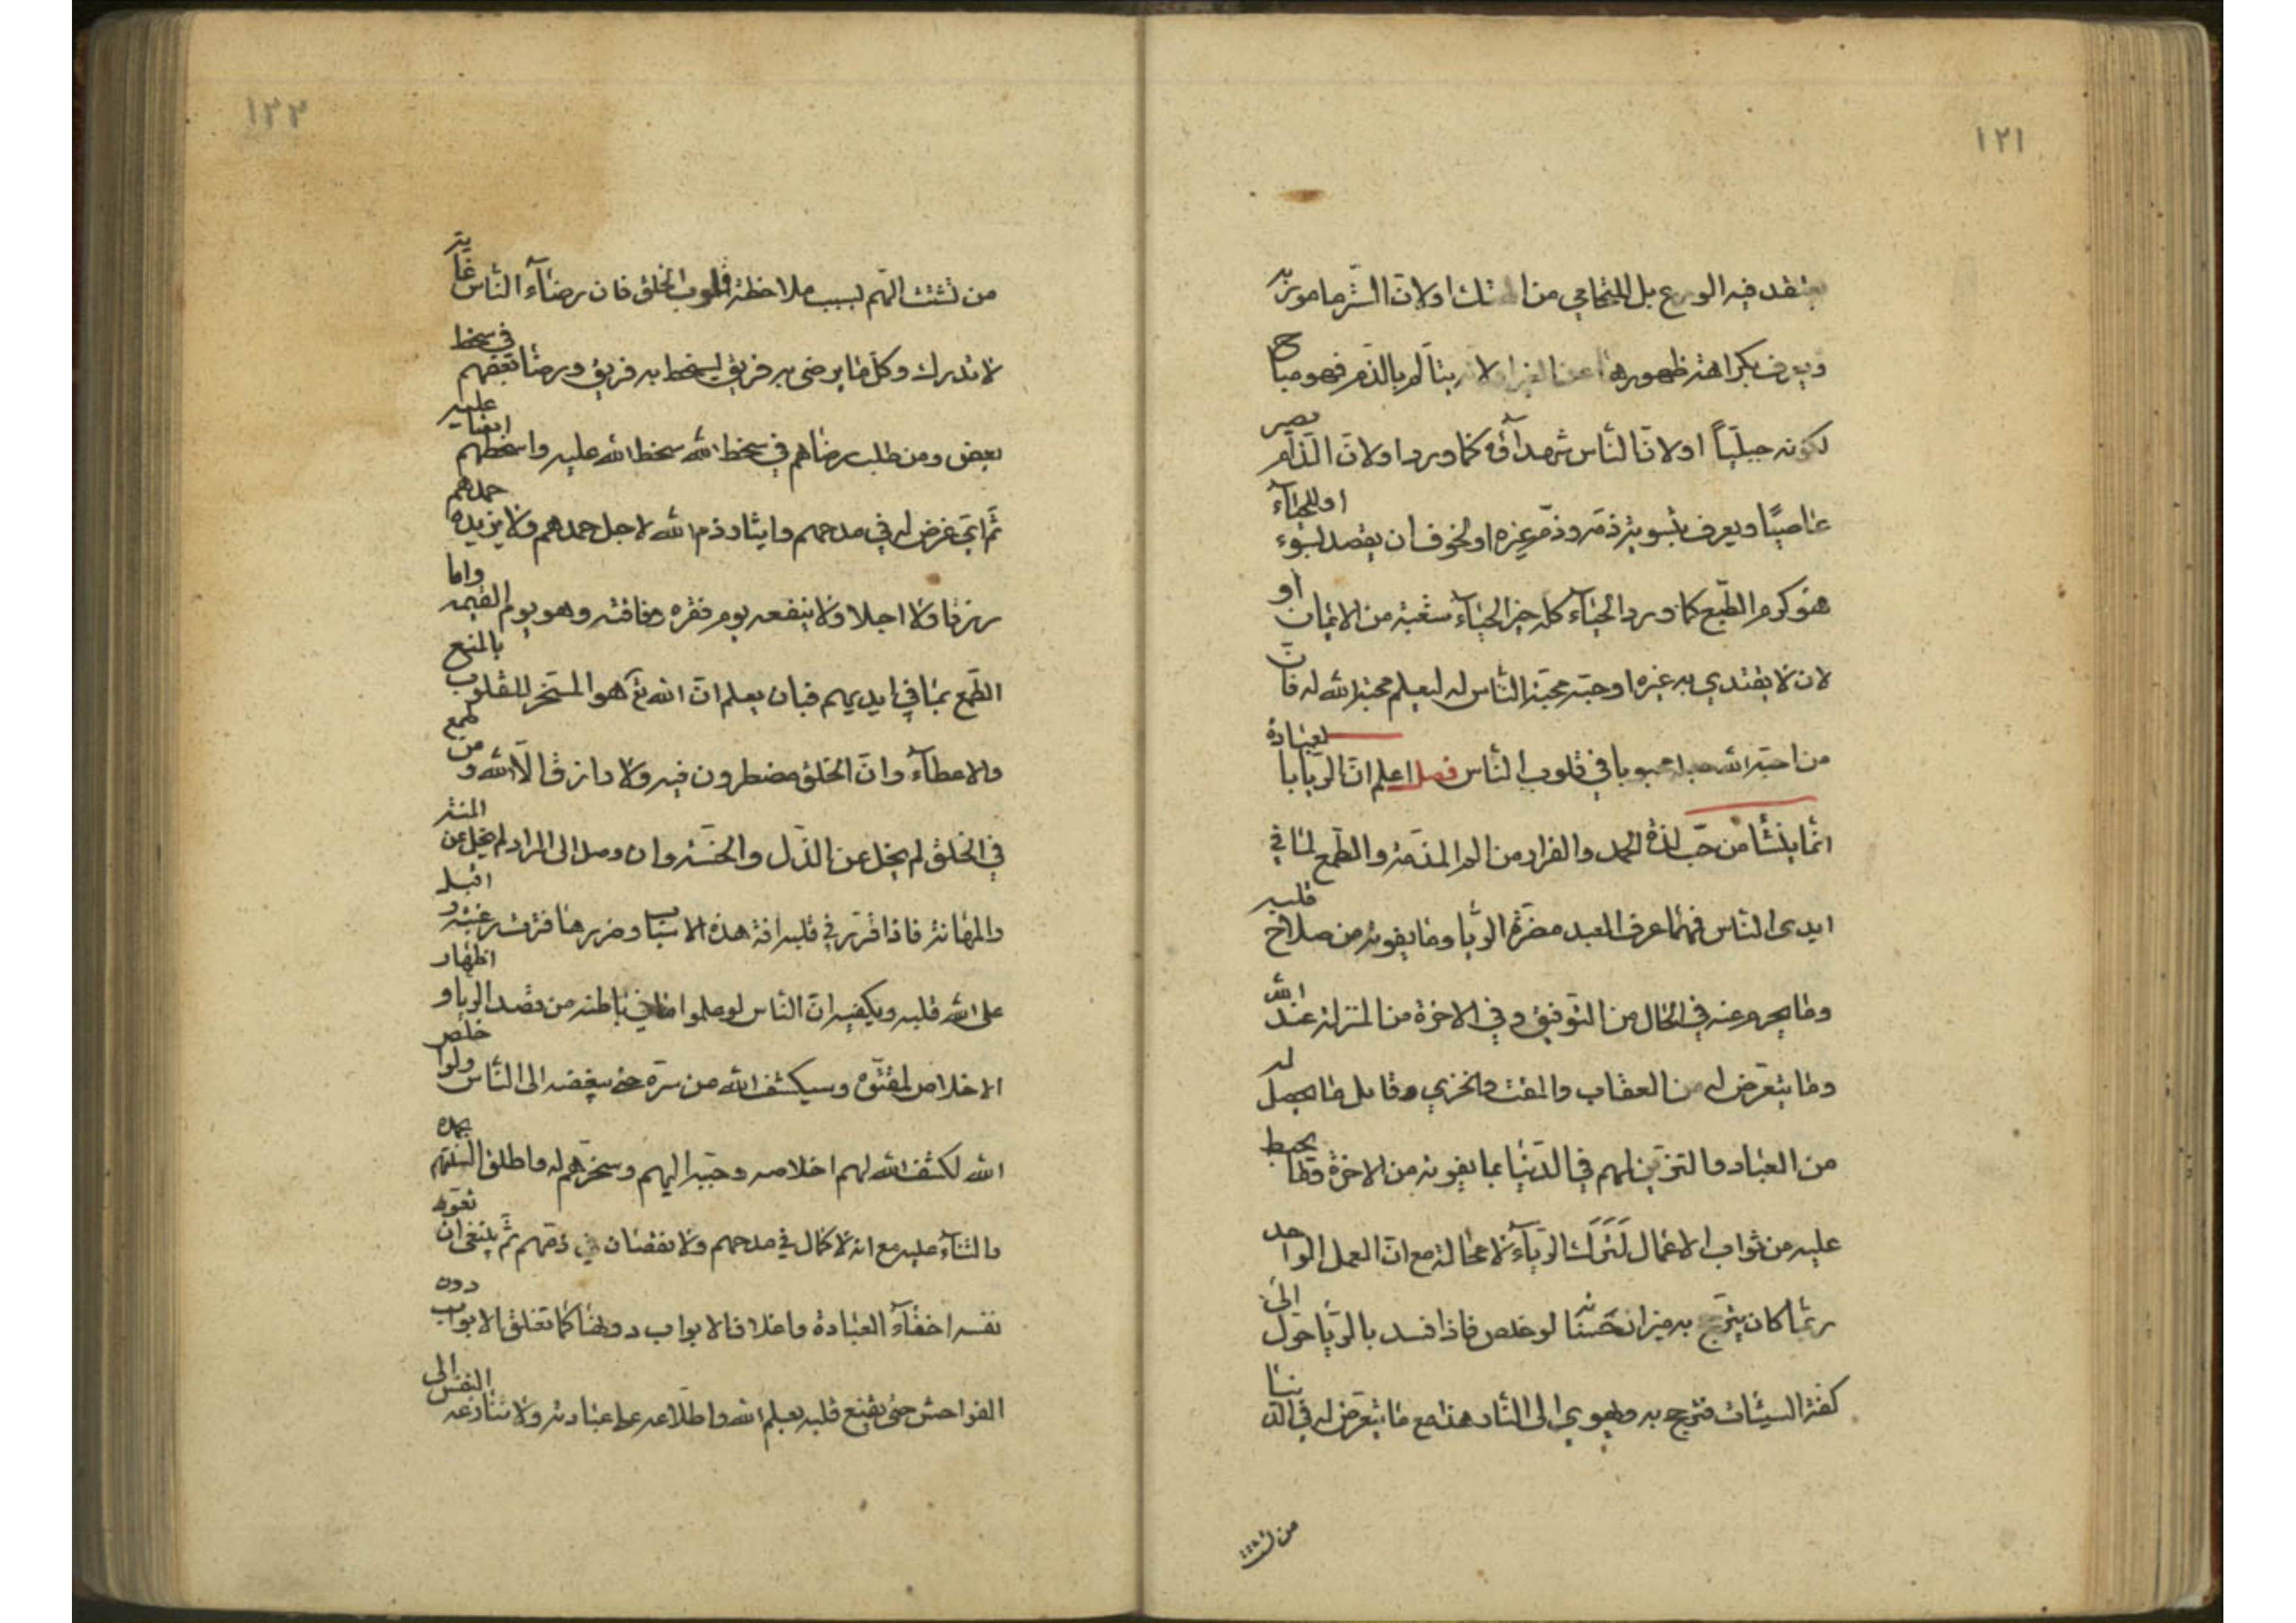 ١٢١
يعتقد فيه الورع بل للتحامي من الهتك او لان الستر مامور به
ويعرف بكراهته ظهورها عن الغير او لانه يتالم بالذم فهو مباح
لكونه جبليّاً او لانّ الناس شهداؤه كما ورد او لانّ الذامّ يصير
عاصيًا ويعرف بتسوية ذمّه وذمّ غيره او لخوف ان يقصد بسوء او للحيآء
هو كرم الطّبع كما ورد الحيآء كله خير الحيآء شعبة من الايمان او
لان لا يقتدي به غيره او حبّه محبّة النّاس له ليعلم محبة الله له فانّ
من احبّه الله جعله محبوبا في قلوب النّاس فصل اعلم انّ الريا بالعبادة
انّما ينشأ من حبّ لذة الحمد والفرار من الم المذمّة والطّمع لما في
ايدى النّاس فمهما عرف العبد مضرّة الرّيا وما يفوته من صلاح قلبه
وما يحرم عنه في الحال من التوفيق وفي الاخرة من المنزلة عند الله
وما يتعرّض له من العقاب والمقت والخزي وقابل ما يحصل له
من العباد والتزيّن لهم في الدّنيا بما يفوته من الاخرة وما يحبط
عليه من ثواب الاعمال لَتَرَكَ الريآء لا محالة مع انّ العمل الواحد
ربّما كان يترجّح به ميزان حَسَناته لو خلص فاذا فسد بالريّا حوّل الى
كفّة السيّئات فترجح به ويهوي الى النّار هذا مع ما يتعرّض له في الدّنيا
من تشتت
١٢٢
من تشتت الهّم بسبب ملاحظة قلوب الخلق فان رضآء النّاس غاية
لا تدرك وكلّ ما يرضى به فريق يسخط به فريق ورضا بعضهم في سخط
بعض ومن طلب رضاهم في سخط الله سخط الله عليه واسخطهم ايضا عليه
ثمّ ايّ غرض له في مدحهم وايثار ذم الله لاجل حمدهم ولا يزيده حمدهم
رزقا ولا اجلا ولا ينفعه يوم فقره وفاقته وهو يوم القيمة واما
الطّمع بما في ايديهم فبان يعلم انّ الله تع هو المسخّر للقلوب بالمنع
والاعطآء وانّ الخلق مضطرون فيه ولا رازق الّا الله ومن طمع
في الخلق لم يخل عن الذّل والخسّة وان وصل الى المراد لم يخل عن المنة
والمهانة فاذا قرّر في قلبه افة هذه الاسباب وضررها فترت رغبته واقبل
على الله قلبه ويكفيه انّ النّاس لو علموا ما في باطنه من قصد الريا واظهار
الاخلاص لمقتوه وسيكشف الله عن سرّه حتى يبغضه الى النّاس ولو اخلص
الله لكشف الله لهم اخلاصه وحبّبه اليهم وسخّرهم له واطلق السنتهم بحمده
والثنآء عليه مع انه لا كمال في مدحهم ولا نقصان في ذمّهم ثمّ ينبغي ان يعوّد
نفسه اخفآء العبادة واغلاق الابواب دونها كما تغلق الابواب دون
الفواحش حتى يقنع قلبه بعلم الله واطلاعه على عبادته ولا تنازعه النفس الى